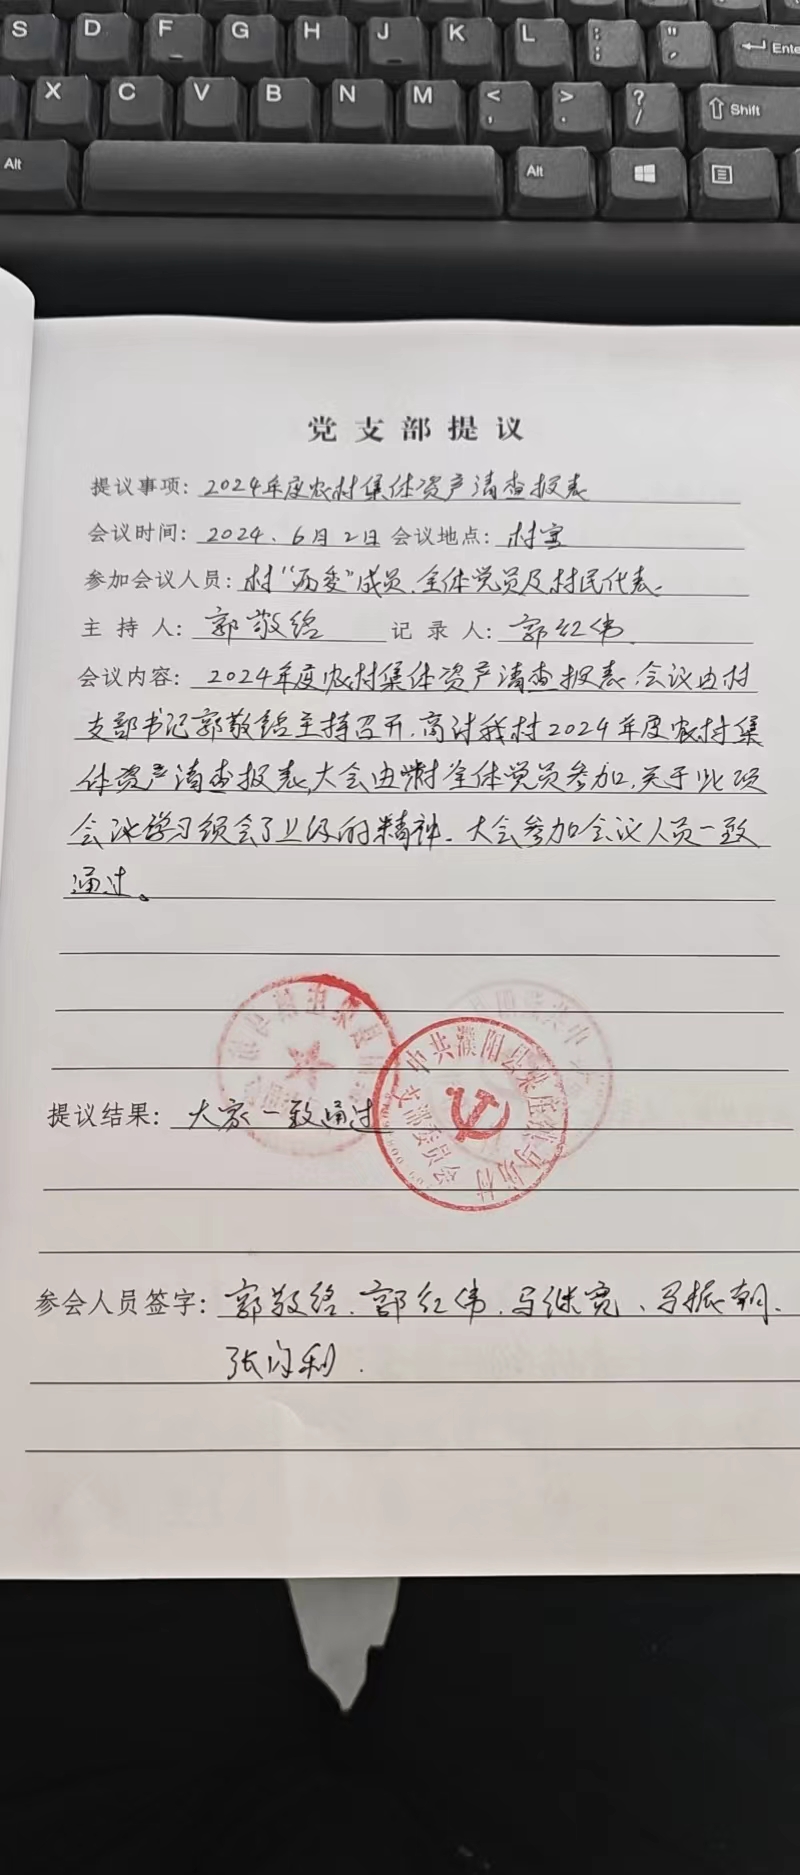 S D F G H J K L : ; " ' Enter
X C V B N M < , > . ? / Shift
Alt Alt
党支部提议
提议事项：2024年度农村集体资产清查报表
会议时间：2024.6月2日 会议地点：村室
参加会议人员：村“两委”成员、全体党员及村民代表.
主持人：郭敬铭 记录人：郭红伟
会议内容：2024年度农村集体资产清查报表,会议由村
支部书记郭敬铭主持召开,商讨我村2024年度农村集
体资产清查报表,大会由村全体党员参加,关于此项
会议学习领会了上级的精神.大会参加会议人员一致
通过。
提议结果：大家一致通过
中共濮阳县梁庄镇马房村
支部委员会
参会人员签字：郭敬铭、郭红伟、马继宽、马振朝、
张利